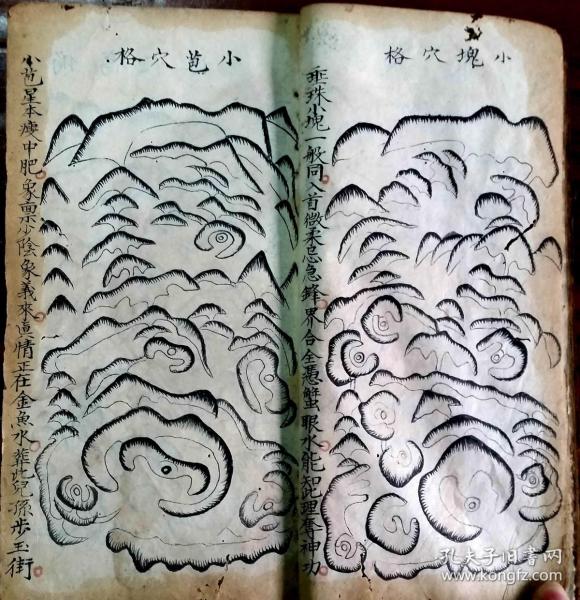 小塊穴格
垂珠小塊一般同入首微柔忌急鋒界合全憑蟹眼水能知此理奪神功
小芭穴格
小芭星本瘦中肥象稟少陰象義來遠情正在金魚水葬此兒孫步玉街
孔夫子旧书网
www.kongfz.com